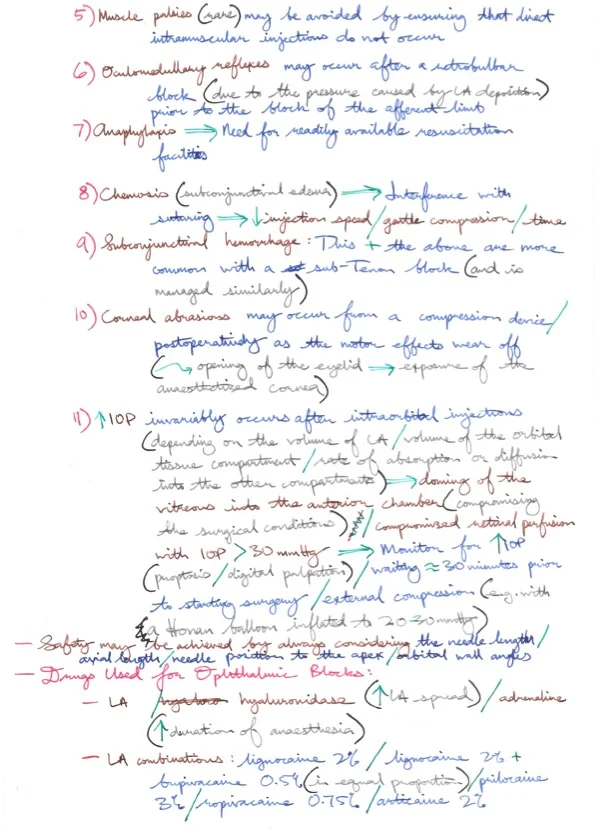 5) Muscle palsies (rare) may be avoided by ensuring that direct
intramuscular injections do not occur
6) Oculomedullary reflexes may occur after a retrobulbar
block (due to the pressure caused by LA deposition)
prior to the block of the afferent limb
7) Anaphylaxis ⇒ Need for readily available resuscitation
facilities
8) Chemosis (subconjunctival edema) → Interference with
suturing → ↓ injection speed / gentle compression / time
9) Subconjunctival hemorrhage : This + the above are more
common with a sub-Tenon block (and is
managed similarly)
10) Corneal abrasions may occur from a compression device /
postoperatively as the motor effects wear off
(↪ opening of the eyelid ⇒ exposure of the
anaesthetized cornea)
11) ↑ IOP invariably occurs after intraorbital injections
(depending on the volume of LA / volume of the orbital
tissue compartment / rate of absorption or diffusion
into the other compartments) ⇒ doming of the
vitreous into the anterior chamber (compromising
the surgical conditions) / compromized retinal perfusion
with IOP > 30 mmHg ⇒ Monitor for ↑ IOP
(proptosis / digital palpation) / waiting ≈ 30 minutes prior
to starting surgery / external compression (e.g. with
a Honan balloon inflated to 20-30 mmHg)
— Safety may be achieved by always considering the needle length /
axial length / needle position to the apex / orbital wall angles
— Drugs Used for Ophthalmic Blocks :
— LA / hyaluronidase (↑ LA spread) / adrenaline
(↑ duration of anaesthesia)
— LA combinations : lignocaine 2% / lignocaine 2% +
bupivacaine 0.5% (in equal proportion) / prilocaine
3% / ropivacaine 0.75% / articaine 2%